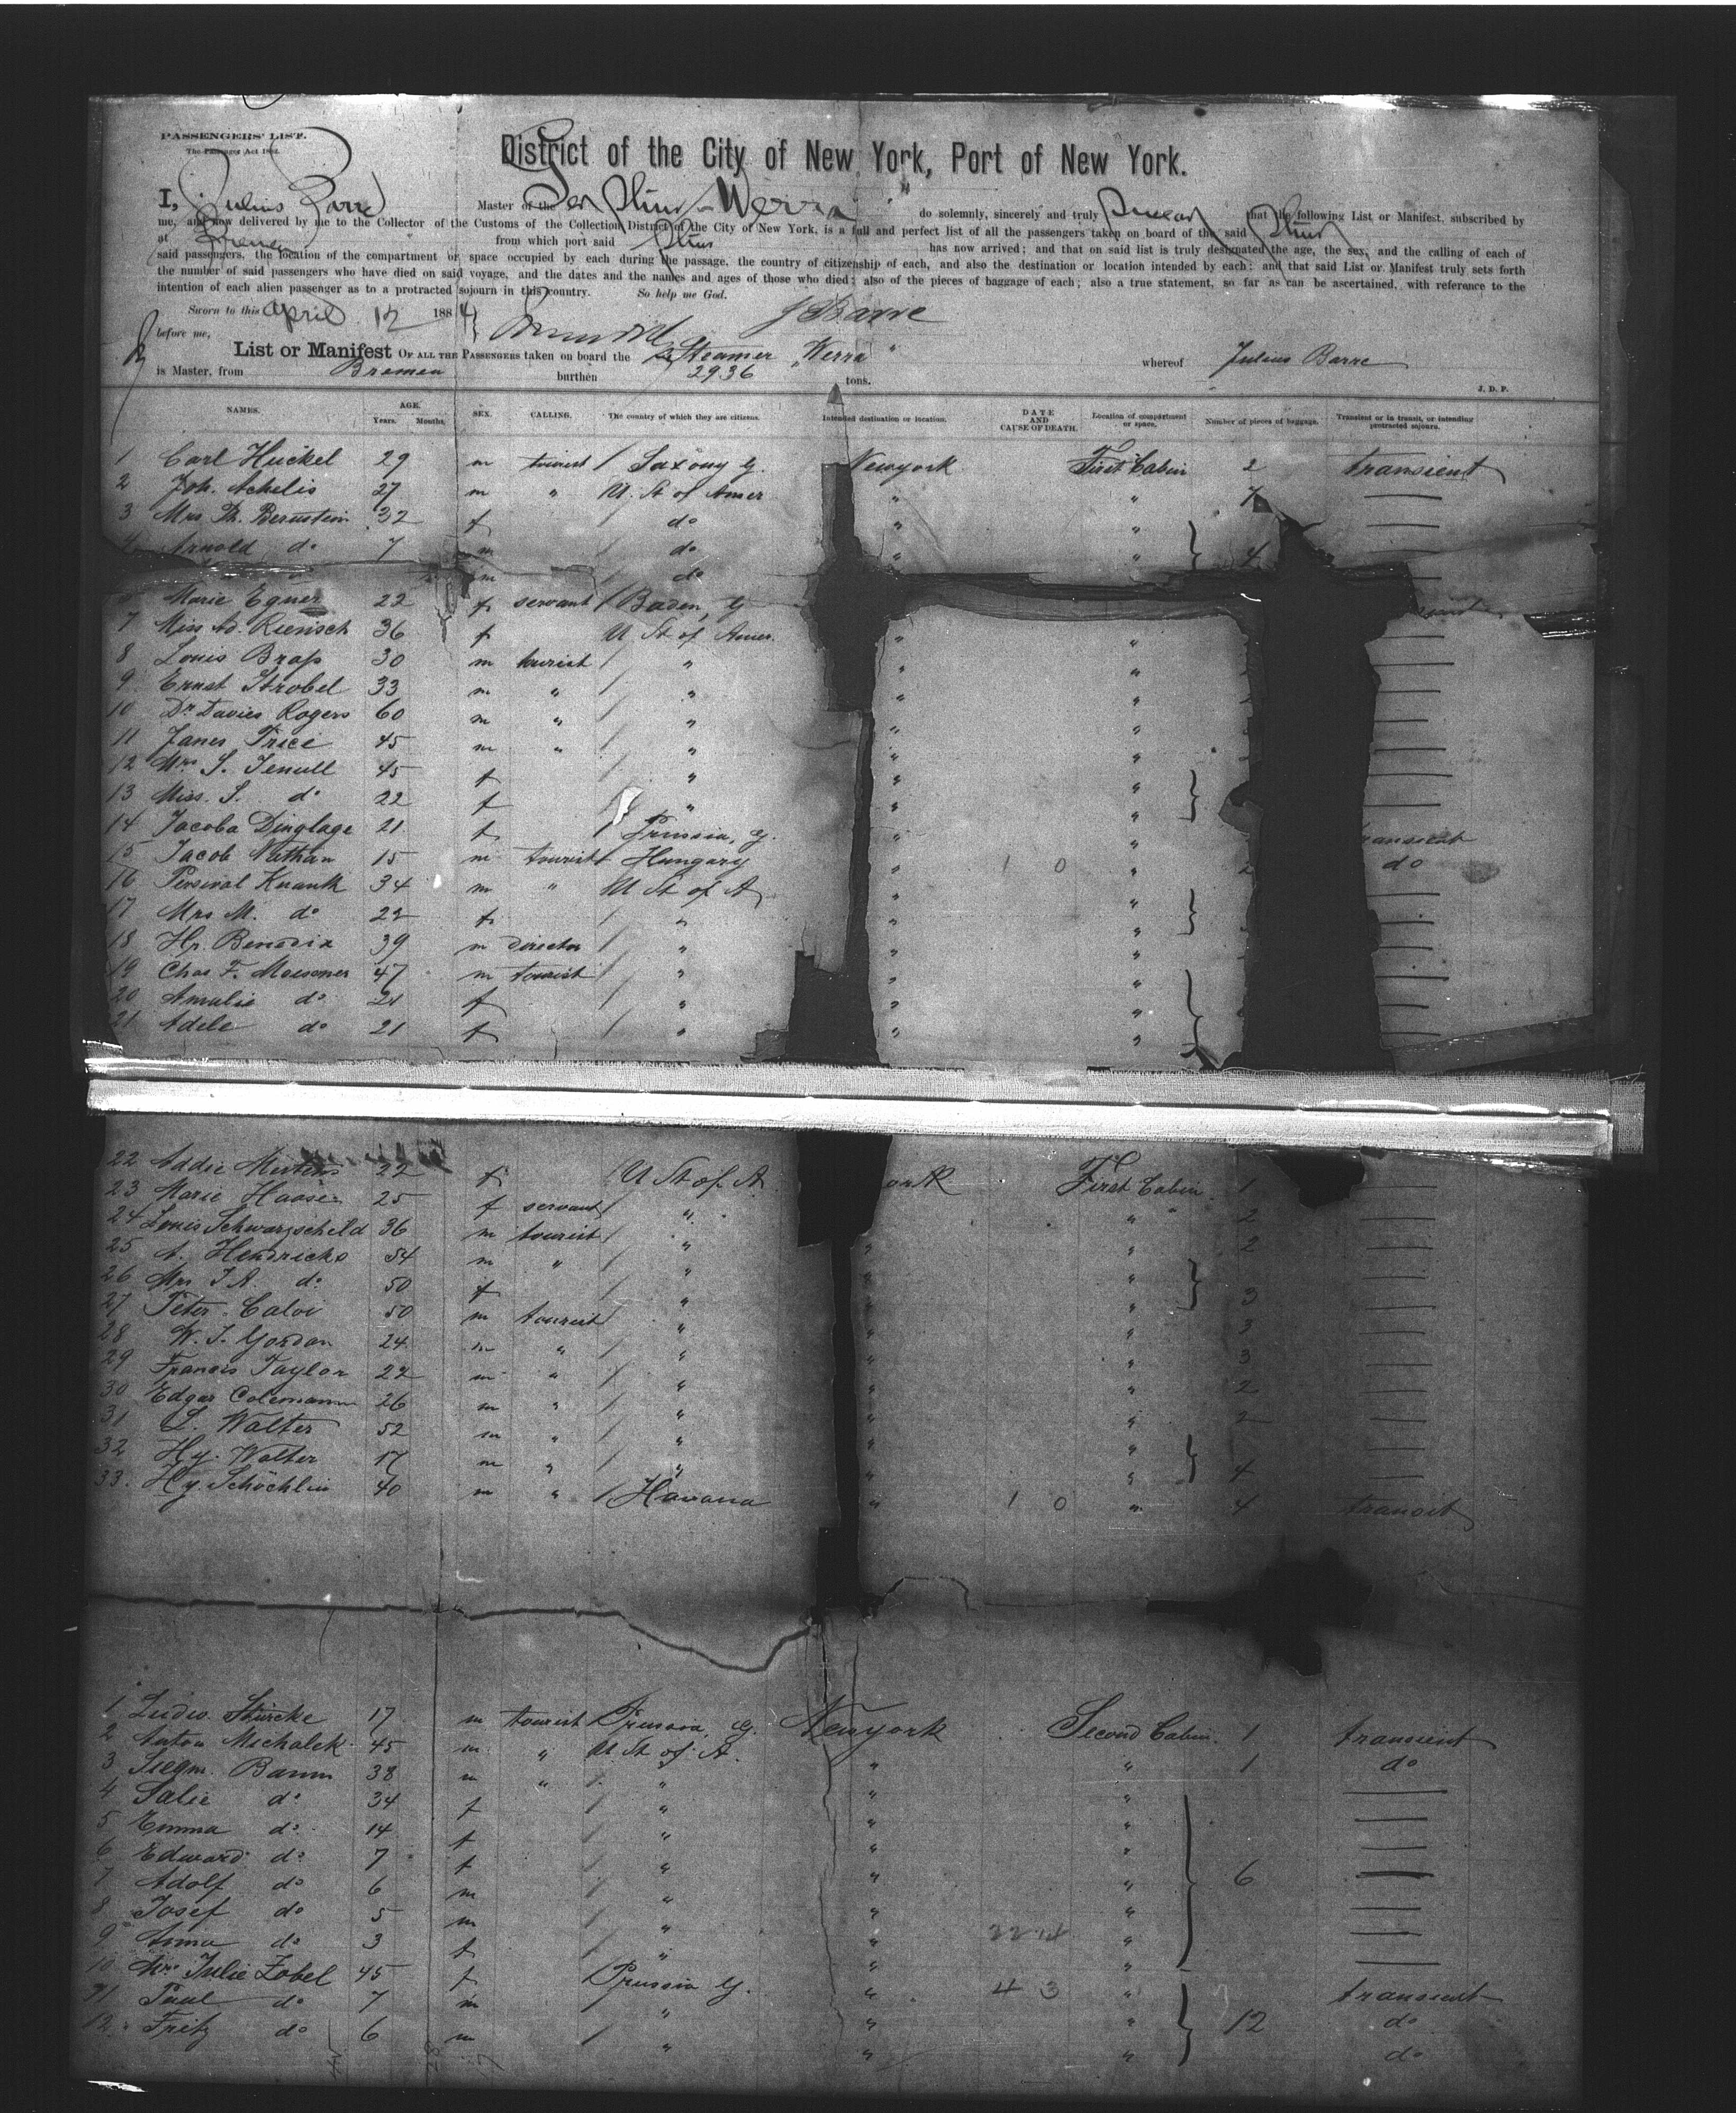 PASSENGERS' LIST.
The Passenger Act 1882.
District of the City of New York, Port of New York.
I, Julius Barre Master of the Ger Stmr Werra do solemnly, sincerely and truly swear that the following List or Manifest, subscribed by
me, and now delivered by me to the Collector of the Customs of the Collection District of the City of New York, is a full and perfect list of all the passengers taken on board of the said Stmr
at Bremen from which port said Stmr has now arrived; and that on said list is truly designated the age, the sex, and the calling of each of
said passengers, the location of the compartment or space occupied by each during the passage, the country of citizenship of each, and also the destination or location intended by each; and that said List or Manifest truly sets forth
the number of said passengers who have died on said voyage, and the dates and the names and ages of those who died; also of the pieces of baggage of each; also a true statement, so far as can be ascertained, with reference to the
intention of each alien passenger as to a protracted sojourn in this country. So help me God.
Sworn to this April 12 1884 J Barre
before me,
List or Manifest OF ALL THE PASSENGERS taken on board the Steamer "Werra" whereof Julius Barre
is Master, from Bremen burthen 2936 tons.
J. D. P.
NAMES. AGE. Years. Months. SEX. CALLING. The country of which they are citizens. Intended destination or location. DATE AND CAUSE OF DEATH. Location of compartment or space. Number of pieces of baggage. Transient or in transit, or intending protracted sojourn.
1 Carl Huckel 29 m tourist / Saxony G. Newyork First Cabin 2 transient
2 Joh. Achelis 27 m " U. St of Amer " "
3 Mrs Th. Bernstein 32 f / do " "
4 Arnold do 7 m / do " " 4
m do
Marie Egner 22 f servant / Baden, G
7 Miss Ad. Riensch 36 f U St of Amer. " "
8 Louis Brass 30 m tourist / " " "
9 Ernst Strobel 33 m " / " " "
10 Dr Davies Rogers 60 m " / " " "
11 James Price 45 m " / " " "
12 Mrs S. 45 f / " " "
13 Miss. S. do 22 f / " " "
14 Jacoba Dinglage 21 f / Prussia, G. " " ransient
15 Jacob Nathan 15 m tourist / Hungary " 1 0 " 2 do
16 Percival Knauth 34 m " U St of A " "
17 Mrs M. do 22 f / " " "
18 Hr. Bendix 39 m director / " " "
19 Chas F. Meissner 47 m tourist / " " "
20 Amalie do 24 f / " " "
21 Adele do 21 f / " " "
22 Addie Mertens 22 f / U St of A ork First Cabin 1
23 Marie Haase 25 f servant / " " 2
24 Louis Schwarzscheld 36 m tourist / " " 2
25 A. Hendricks 54 m " / " " "
26 Mrs J A. do 50 f / " " " 3
27 Peter Calvi 50 m tourist / " " " 3
28 W. J. Gordon 24 m " / " " " 3
29 Francis Taylor 22 m " / " " " 2
30 Edgar Colemann 26 m " / " " " 2
31 L. Walter 52 m " / " " "
32 Hy. Walter 17 m " / " " " 4
33. Hy. Schöchlin 40 m " / Havana " 1 0 " 4 transit
1 Ludw. Stürcke 17 m tourist / Prussia, G. Newyork Second Cabin. 1 transient
2 Anton Michalek 45 m " U St of A. " " 1 do
3 Siegm. Baum 38 m " / " " "
4 Salie do 34 f / " " "
5 Emma do 14 f / " " "
6 Edward do 7 f / " " " 6
7 Adolf do 6 m / " " "
8 Josef do 5 m / " " "
9 Anna do 3 f / " " 22 14 "
10 Mrs Julie Zobel 45 f / Prussia G. " 4 3 " transient
11 Paul do 7 m " " " 12 do
12 Fritz do 6 m / " " " do